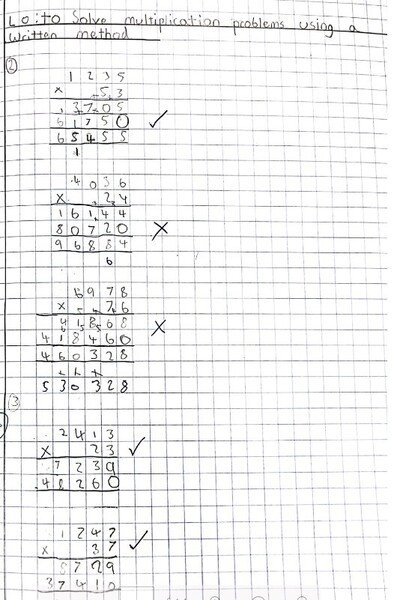 LO: to Solve multiplication problems using a
written method
②
1 2 3 5
× 5 3
3 7 0 5
6 1 7 5 0
6 5 4 5 5
1
4 0 3 6
× 2 4
1 6 1 4 4
8 0 7 2 0
9 6 8 8 4
6
6 9 7 8
× 7 6
4 1 8 6 8
4 1 8 4 6 0
4 6 0 3 2 8
5 3 0 3 2 8
③
2 4 1 3
× 2 3
7 2 3 9
4 8 2 6 0
1 2 4 7
× 3 7
8 7 2 9
3 7 4 1 0